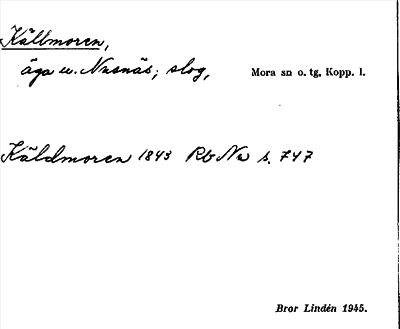 Källmoren,
äga u. Nusnäs; slog,
Mora sn o. tg, Kopp. l.
Käldmoren 1843 Rb Na s. 747
Bror Lindén 1945.